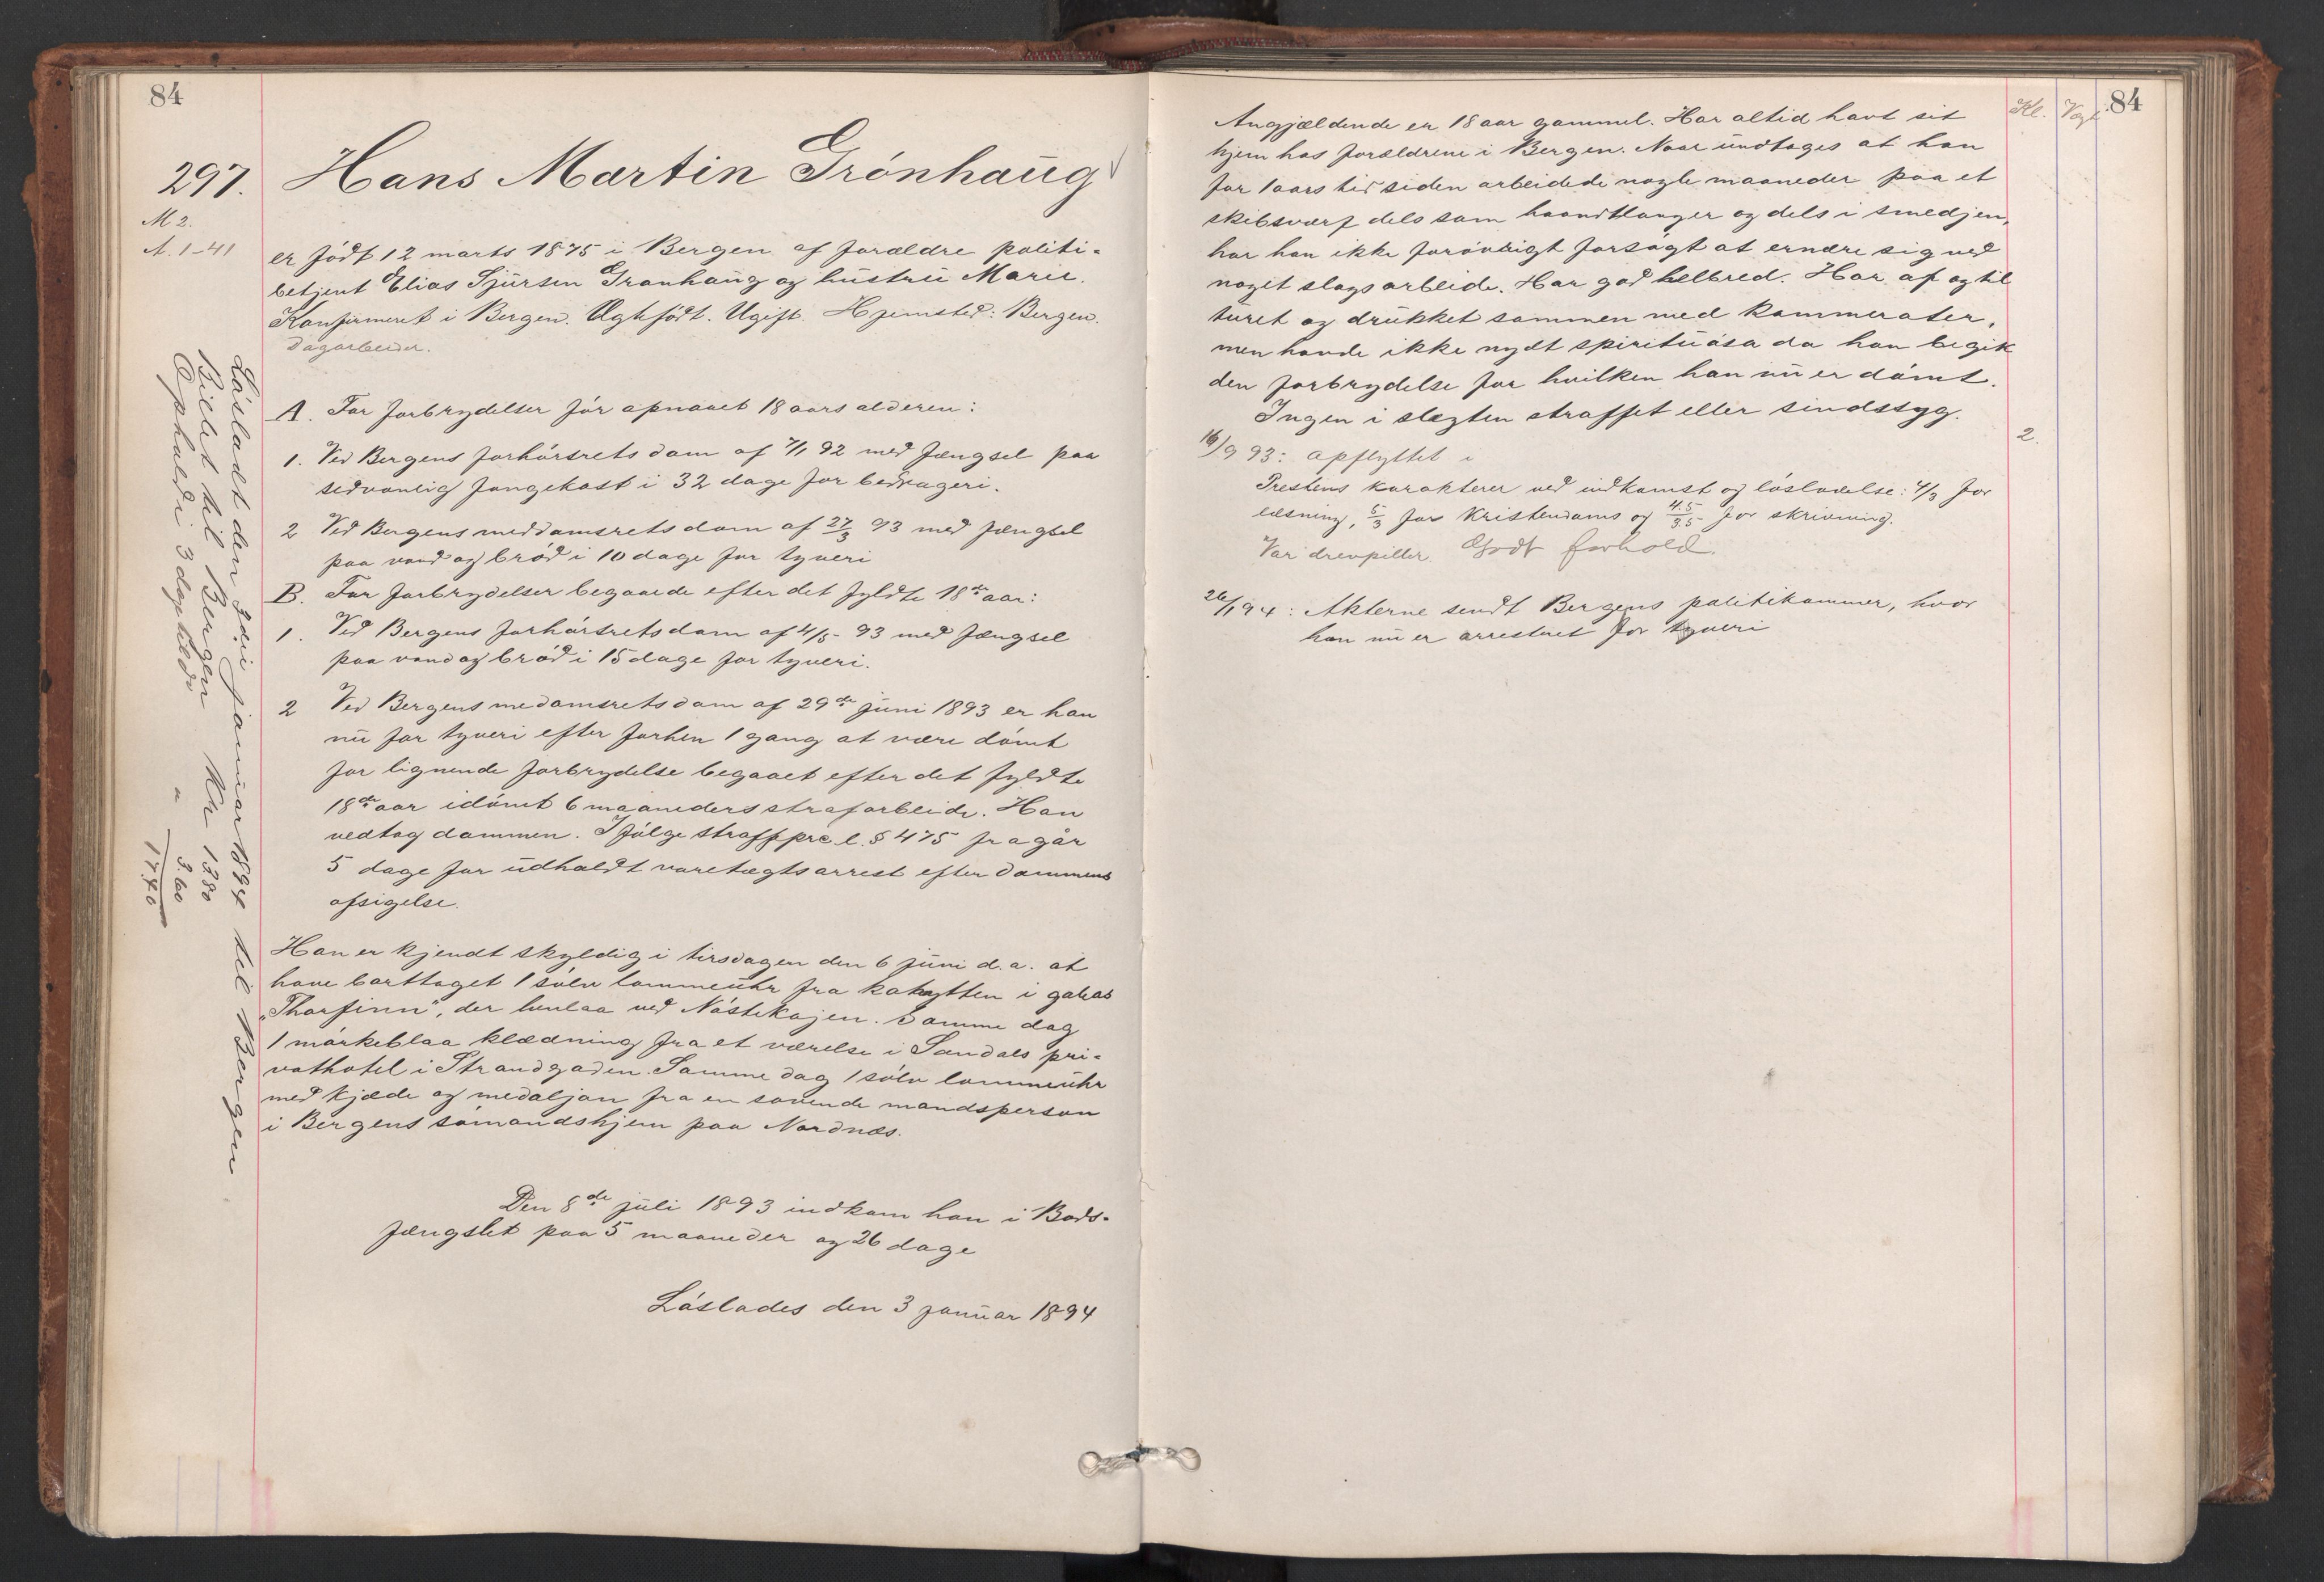 84
297. Hans Martin Grónhaug
M 2.
A. 1-41
er födt 12 marts 1875 i Bergen af forældre politi-
betjent Elias Sjursen Grønhaug og hustru Marie.
Konfirmeret i Bergen. Ugift. Hjemsted: Bergen.
Dagarbeider.
A. For forbrydelser för opnaaet 18 aars alderen:
1. Ved Bergens forhörsrets dom af 7/1 92 med fængsel paa
sedvanlig fangekost i 32 dage for bedrageri.
2 Ved Bergens meddomsrets dom af 27/3 93 med fængsel
paa vand og bröd i 10 dage for tyveri
B. For forbrydelser begaaede efter det fyldte 18de aar:
1. Ved Bergens forhörsrets dom af 4/5 93 med fængsel
paa vand og bröd i 15 dage for tyveri.
2 Ved Bergens medomsrets dom af 29de juni 1893 er han
nu for tyveri efter forhen 1 gang at være dömt
for lignende forbrydelse begaaet efter det fyldte
18de aar idömt 6 maaneders strafarbeide. Han
vedtog dommen. Ifölge straffprc. l. § 475 fragår
5 dage for udholdt varetægtsarrest efter dommens
afsigelse.
Han er kjendt skyldig i tirsdagen den 6 juni d.a. at
have borttaget 1 sölv lommeuhr fra kahytten i galeas
"Thorfinn", der henlaa ved Nöstekajen. Samme dag
1 mörkeblaa klædning fra et værelse i Sandals pri-
vathotel i Strandgaden. Samme dag 1 sölv lommeuhr
med kjæde og medaljon fra en sovende mandsperson
i Bergens sömandshjem paa Nordnæs.
Den 8de juli 1893 indkom han i Bods-
fængslet paa 5 maaneder og 26 dage
Löslades den 3 januar 1894
Lösladt den 3die januar 1894 til Bergen
Billet til Bergen Kr 13.80
Ophold i 3 dage " 3.60
17.40
84
Kl.
Angjældende er 18 aar gammel. Har altid havt sit
hjem hos forældrene i Bergen. Naar undtages at han
for 1 aars tid siden arbeidede nogle maaneder paa et
skibsværf dels som haandtlanger og dels i smedjen,
har han ikke foróvrigt forsögt at ernære sig ved
noget slags arbeide. Har god helbred. Har af og til
turet og drukket sammen med kammerater,
men havde ikke nydt spirituósa da han begik
den forbrydelse for hvilken han nu er dömt.
Ingen i slægten straffet eller sindssyg.
16/9 93: opflyttet i 2.
Prestens karakterer ved indkomst og löslatelse: 4/3 for
læsning, 5/3 for Kristendoms og 4.5/3.5 for skrivning.
Var drevpiller. Godt forhold.
26/1 94: Akterne sendt Bergens politikammer, hvor
han nu er arresteret for tyveri